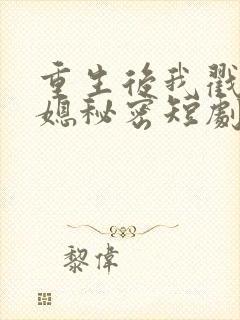 重生後我戳
媳秘密短劇
黎偉